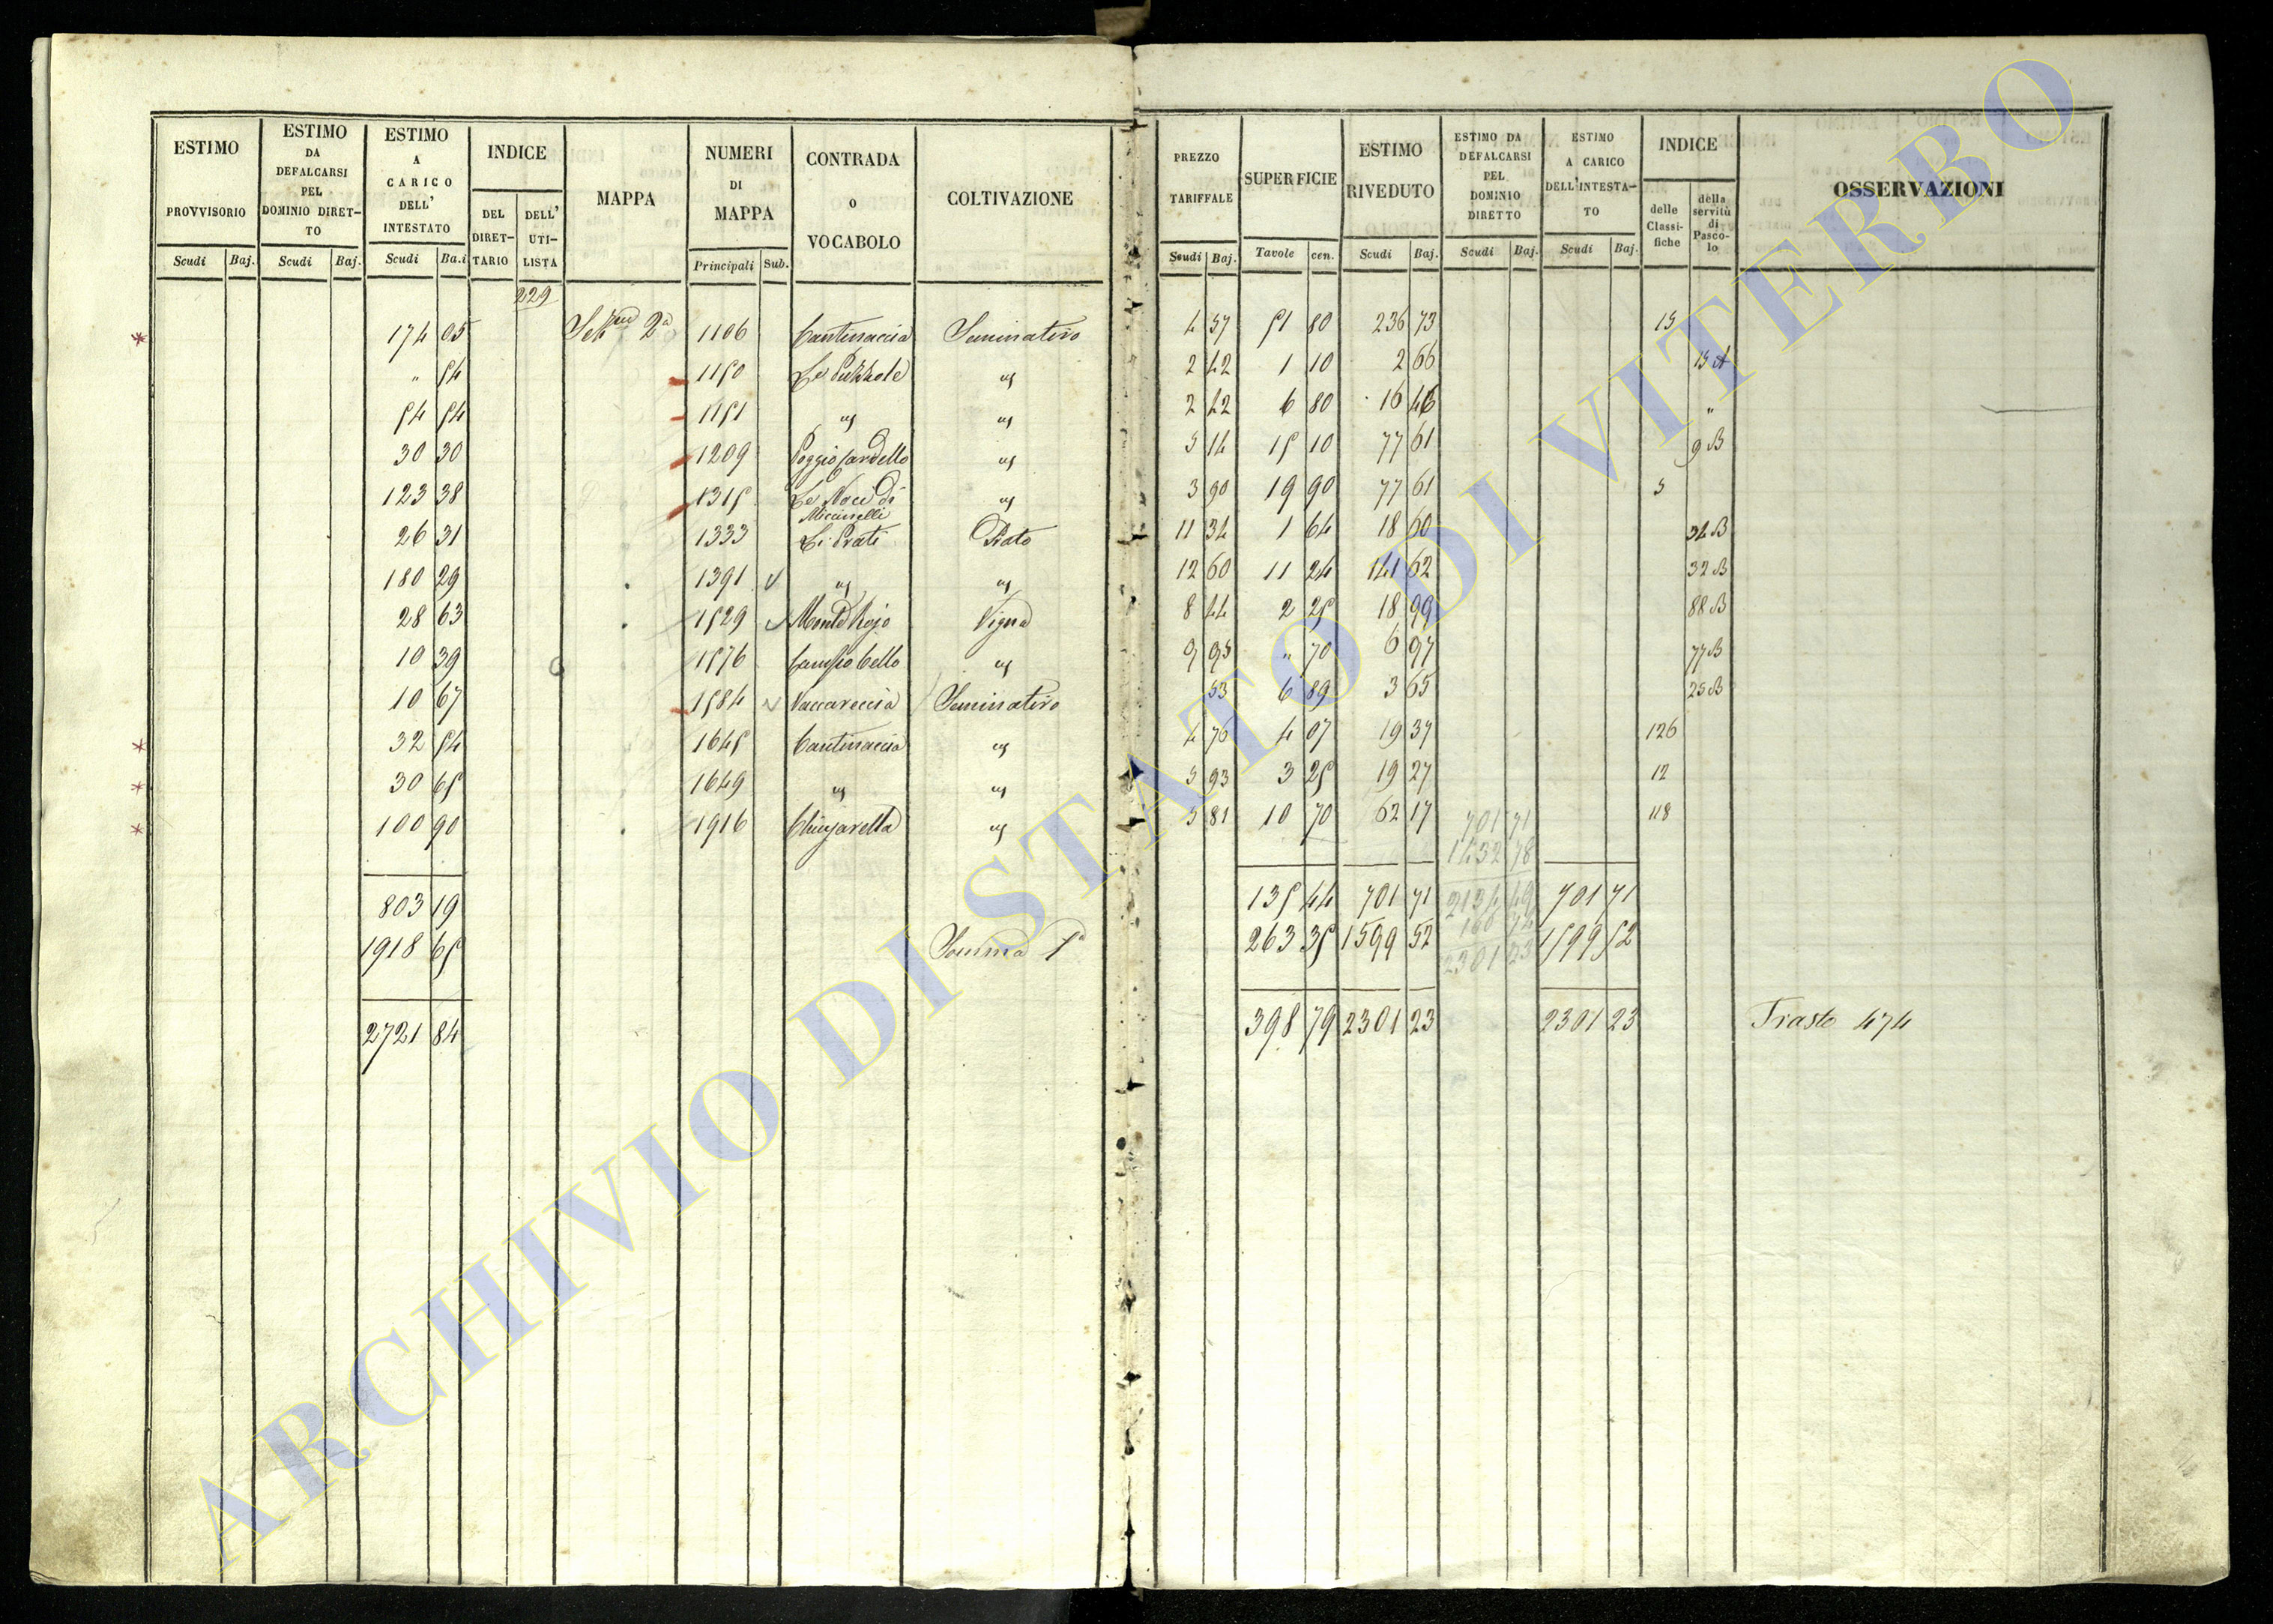 ESTIMO PROVVISORIO Scudi Baj.
ESTIMO DA DEFALCARSI PEL DOMINIO DIRETTO Scudi Baj.
ESTIMO A CARICO DELL' INTESTATO Scudi Ba.i
INDICE DEL DIRETTARIO DELL' UTILISTA
MAPPA
NUMERI DI MAPPA Principali Sub.
CONTRADA O VOCABOLO
COLTIVAZIONE
PREZZO TARIFFALE Scudi Baj.
SUPERFICIE Tavole cen.
ESTIMO RIVEDUTO Scudi Baj.
ESTIMO DA DEFALCARSI PEL DOMINIO DIRETTO Scudi Baj.
ESTIMO A CARICO DELL'INTESTATO Scudi Baj.
INDICE delle Classifiche della servitù di Pascolo
OSSERVAZIONI
229
174 05 Sezne 2a 1106 Cantinaccia Seminativo 4 57 51 80 236 73 15
" 54 1150 Le Puzzole " 2 42 1 10 2 66 15 A
54 54 1151 " " 2 42 6 80 16 46 "
30 30 1209 Poggio Cardello " 5 14 15 10 77 61 9 B
123 38 1315 Le Noci di " 3 90 19 90 77 61 5
26 31 1333 Li Prati Prato 11 34 1 64 18 60 34 B
180 29 1391 " " 12 60 11 24 141 62 32 B
28 63 1529 Monte Rojo Vigna 8 44 2 25 18 99 88 B
10 39 1576 Campo bello " 9 95 " 70 6 97 77 B
10 67 1584 Vaccareccia Seminativo 53 6 89 3 65 25 B
32 54 1645 Cantinaccia " 4 76 4 07 19 37 126
30 65 1649 " " 5 93 3 25 19 27 12
100 90 1916 Chiusarella " 5 81 10 70 62 17 118
701 71
1432 78
803 19 135 44 701 71 2134 49 701 71
1918 65 Somma Pa 263 35 1599 52 1599 52
2301 23
2721 84 398 79 2301 23 2301 23 Trasto 474
ARCHIVIO DI STATO DI VITERBO